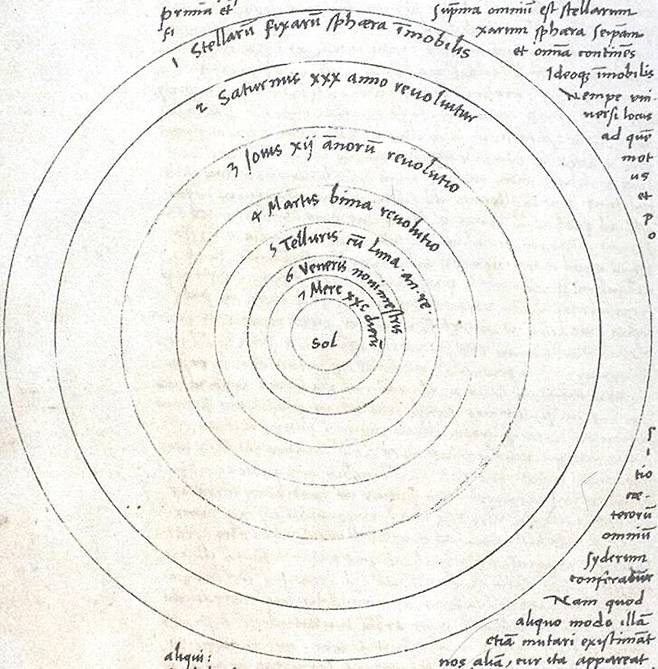 prima et
fi
suprema omniū est stellarum
xarum sphæra seipsam
et omnia continēs
Ideoqȝ īmobilis
Nempe uni-
uersi locus
ad quē
mot
us
et
p
o
1 Stellarū fixarū sphæra īmobilis
2 Saturnus xxx anno reuoluitur
3 Iouis xij ānorū reuolutio
4 Martis bima reuolutio
5 Telluris cū Luna an. re.
6 Veneris nonimestris
7 Merc xxc dierū
Sol
s
i
tio
cæ-
terorū
omniū
syderum
conferatur
Nam quod
aliquo modo illā
etiā mutari existimāt
aliqui:
nos aliā, cur ita appareat